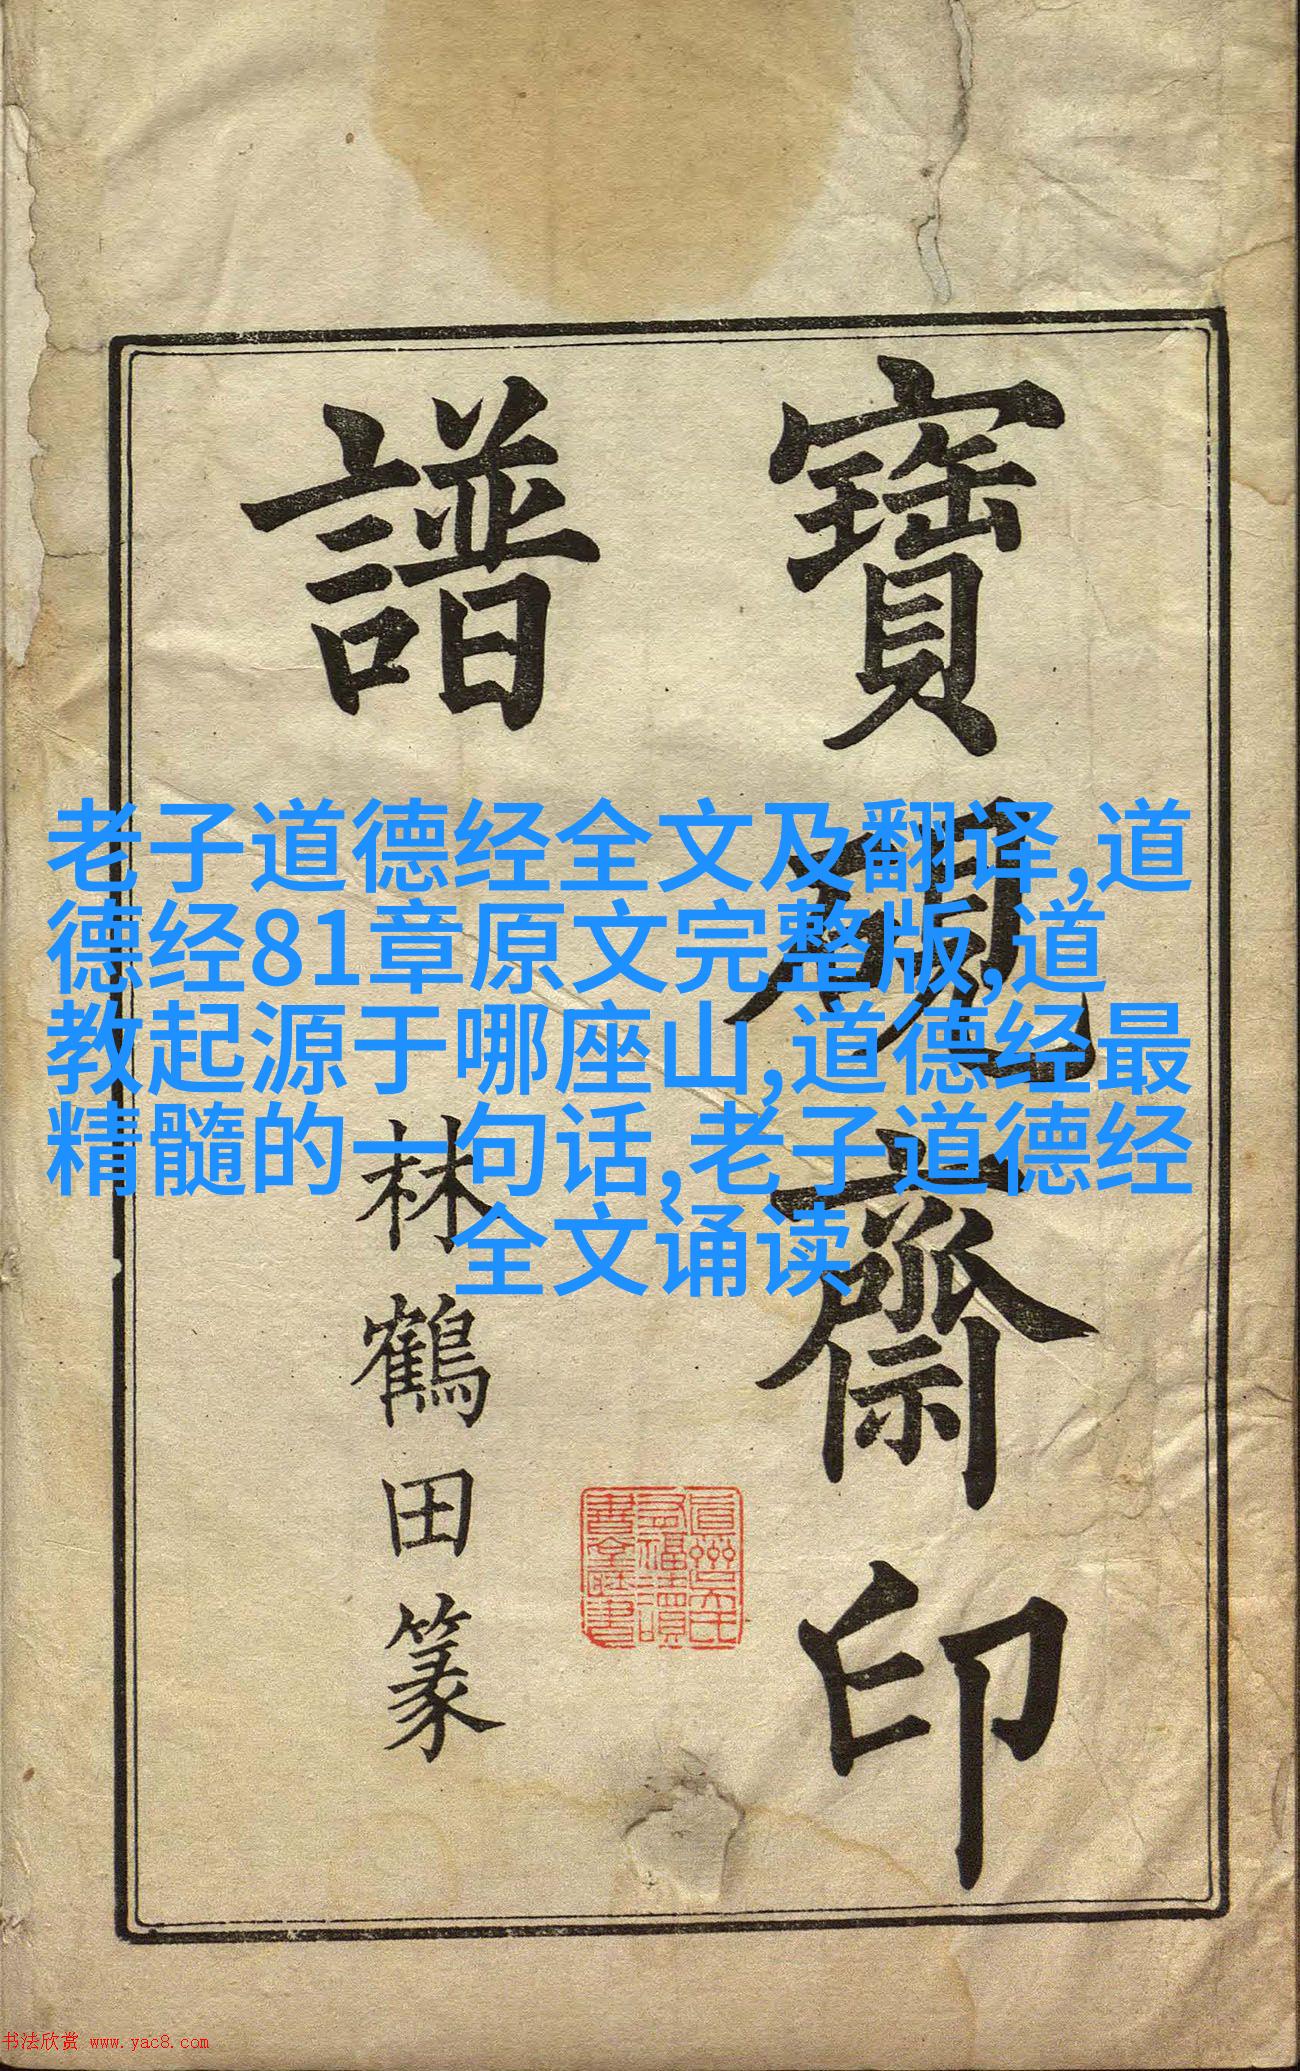 寶硯齋印
譜
林鶴田篆
老子道德经全文及翻译,道
德经81章原文完整版,道
教起源于哪座山,道德经最
精髓的一句话,老子道德经
全文诵读
书法欣赏 www.yac8.com